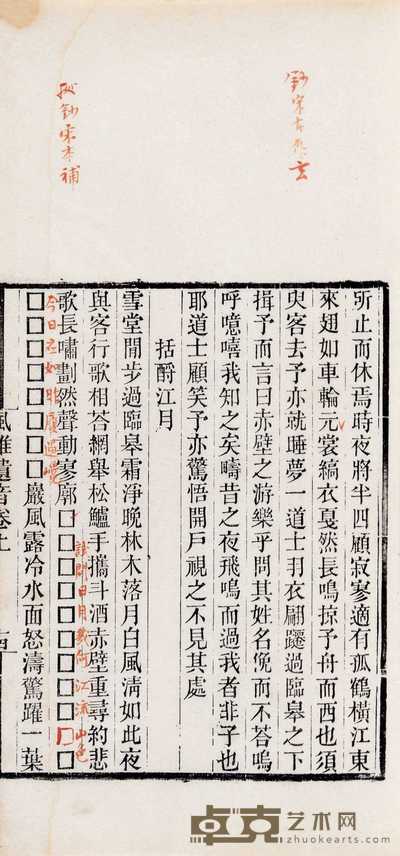 鈔宋本作玄
鈔宋本補
所止而休焉時夜將半四顧寂寥適有孤鶴橫江東
來翅如車輪元裳縞衣戛然長鳴掠予舟而西也須
臾客去予亦就睡夢一道士羽衣翩躚過臨皋之下
揖予而言曰赤壁之游樂乎問其姓名俛而不荅嗚
呼噫嘻我知之矣疇昔之夜飛鳴而過我者非子也
耶道士顧笑予亦驚悟開戶視之不見其處
括酹江月
雪堂閒步過臨皋霜淨晚林木落月白風清如此夜
與客行歌相荅網舉松鱸手攜斗酒赤壁重尋約悲
歌長嘯劃然聲動寥廓□□□□□□□□□□□
日月幾何江流山色
今日如昨履巉
□□□□□□□□巖風露冷水面怒濤驚躍一葉
風雅遺音卷上
卓克艺术网
zhuokearts.com